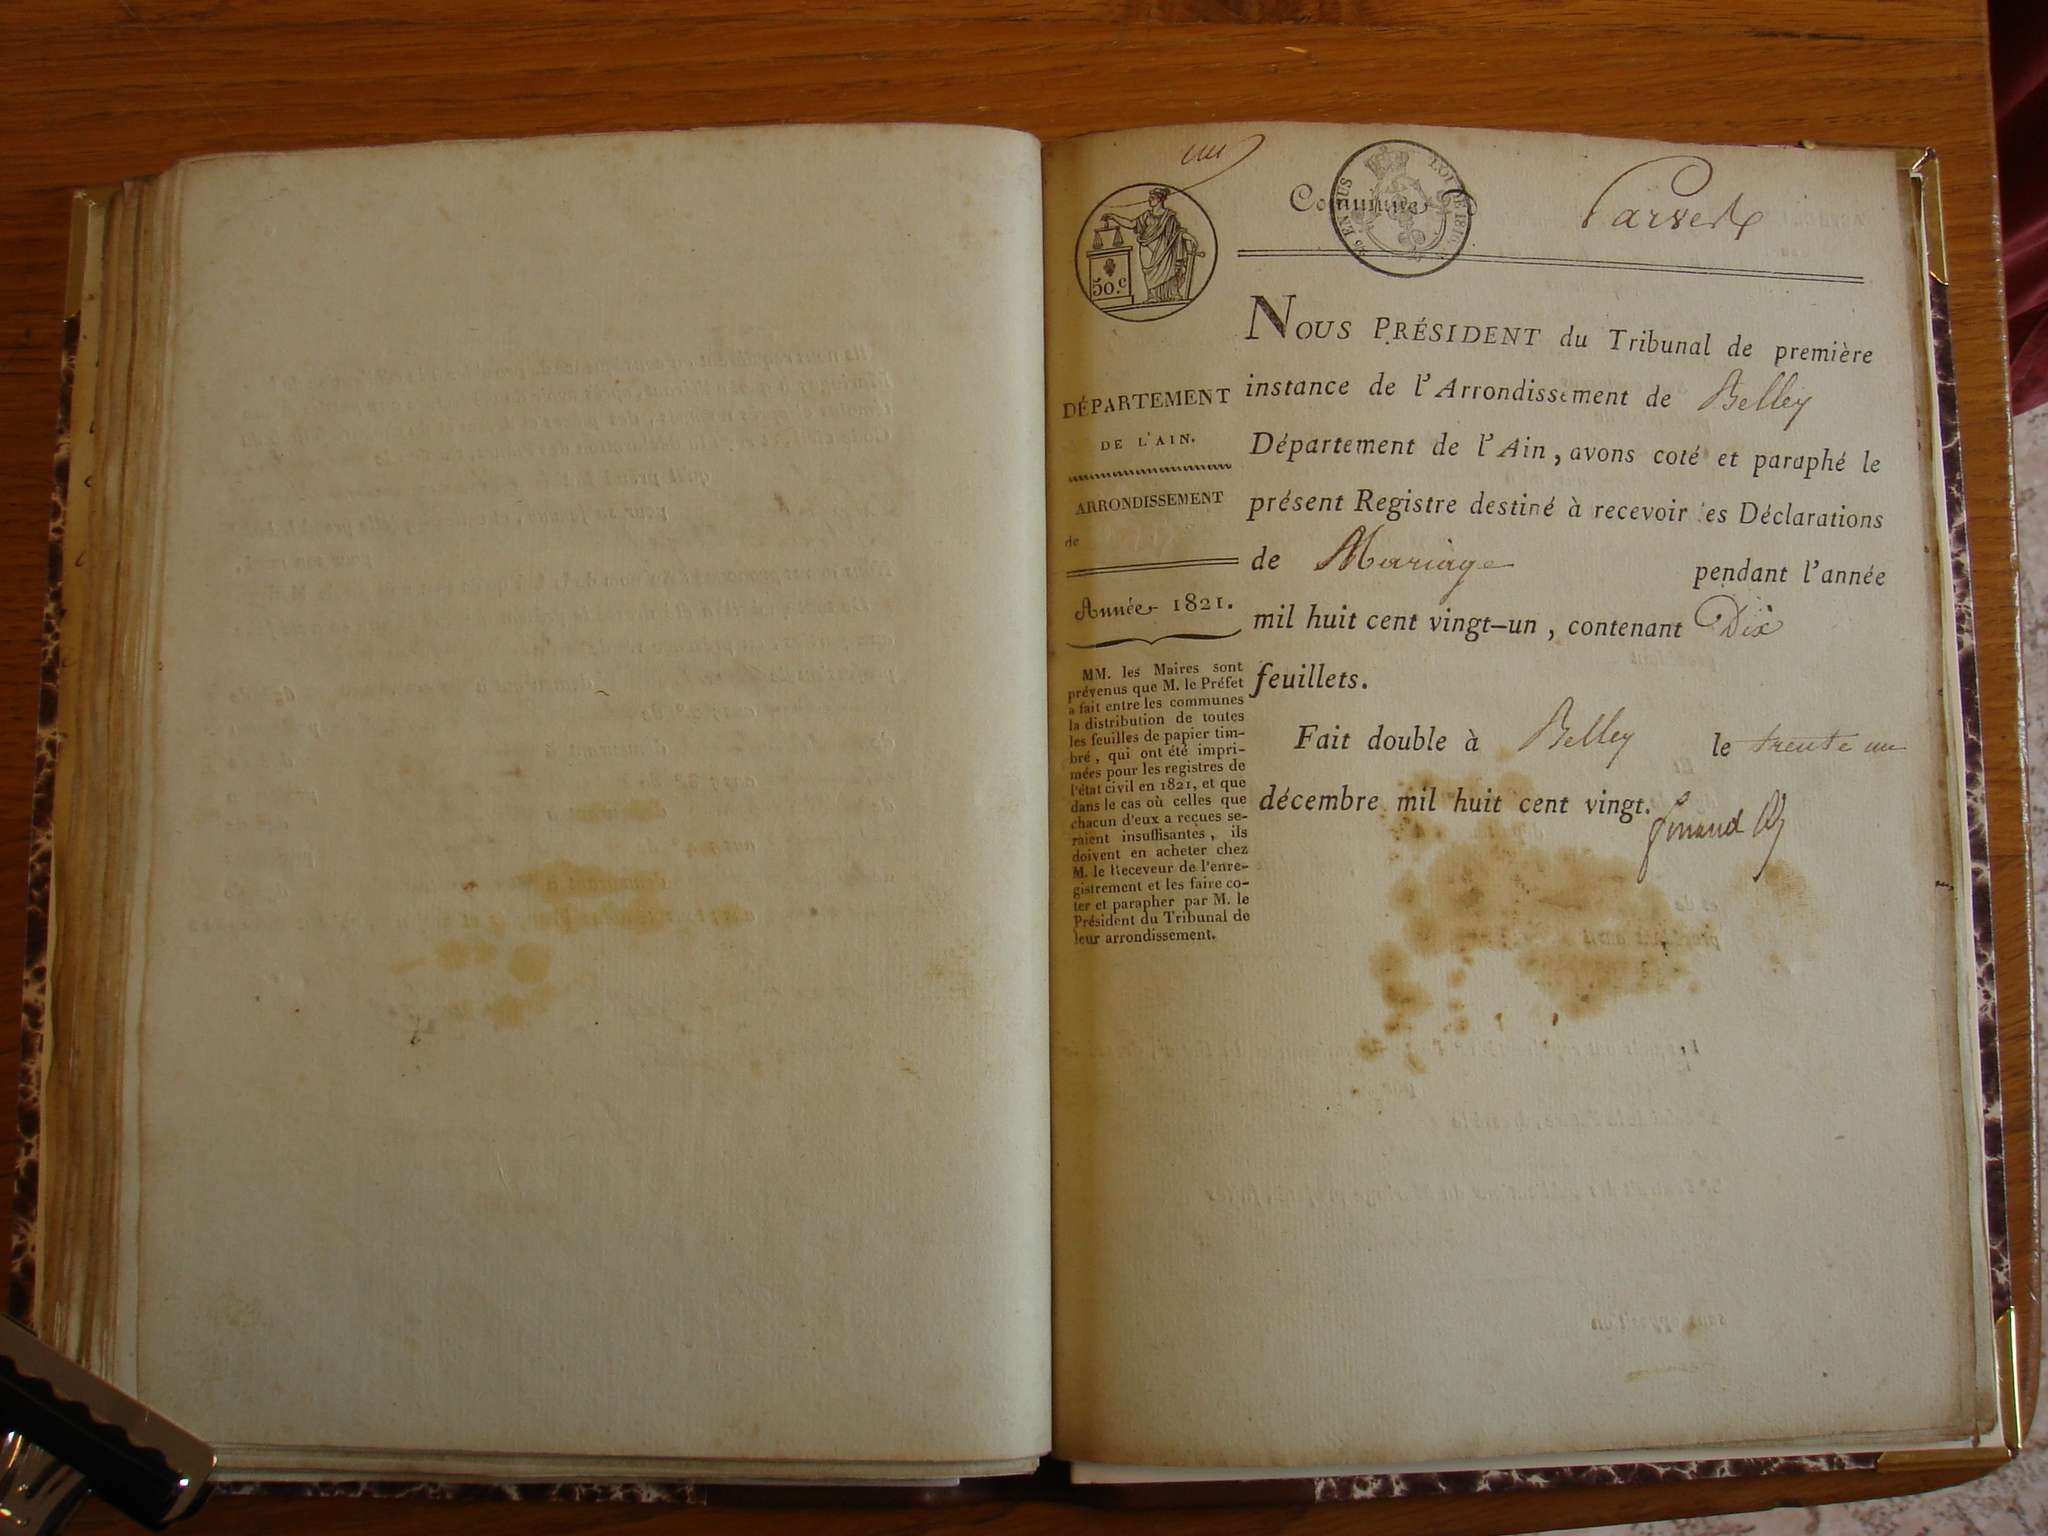 un
50.c
Commune Parves
LOI DE 1816
NOUS PRÉSIDENT du Tribunal de première
instance de l'Arrondissement de Belley
Département de l'Ain, avons coté et paraphé le
présent Registre destiné à recevoir les Déclarations
de Mariage pendant l'année
mil huit cent vingt-un, contenant Dix
feuillets.
Fait double à Belley le trente un
décembre mil huit cent vingt.
DÉPARTEMENT
DE L'AIN.
ARRONDISSEMENT
de
Année 1821.
MM. les Maires sont
prévenus que M. le Préfet
a fait entre les communes
la distribution de toutes
les feuilles de papier tim-
bré, qui ont été impri-
mées pour les registres de
l'état civil en 1821, et que
dans le cas où celles que
chacun d'eux a reçues se-
raient insuffisantes, ils
doivent en acheter chez
M. le Receveur de l'enre-
gistrement et les faire co-
ter et parapher par M. le
Président du Tribunal de
leur arrondissement.